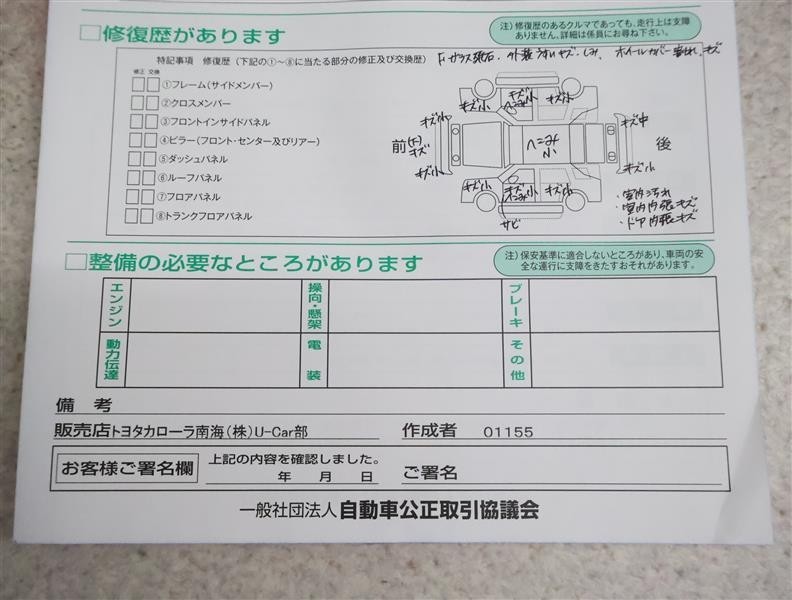 □修復歴があります
注）修復歴のあるクルマであっても、走行上は支障
ありません、詳細は係員にお尋ね下さい。
特記事項 修復歴（下記の①〜⑧に当たる部分の修正及び交換歴）
Fガラス飛石、外装うすいキズ・しみ、ホイールカバー キズ
修正 交換
①フレーム（サイドメンバー）
②クロスメンバー
③フロントインサイドパネル
④ピラー（フロント・センター及びリアー）
⑤ダッシュパネル
⑥ルーフパネル
⑦フロアパネル
⑧トランクフロアパネル
キズ小
キズ小
ヘコみ小
キズ小
キズ小
キズ中
前
(F)
キズ
ヘこみ
小
後
キズ小
キズ小
キズ小
キズ小
キズ小
サビ
・室内汚れ
・室内内張キズ
・ドア内張キズ
□整備の必要なところがあります
注）保安基準に適合しないところがあり、車両の安
全な運行に支障をきたすおそれがあります。
エンジン
操向・懸架
ブレーキ
動力伝達
電装
その他
備考
販売店 トヨタカローラ南海（株）U-Car部
作成者 01155
お客様ご署名欄
上記の内容を確認しました。
年 月 日
ご署名
一般社団法人 自動車公正取引協議会